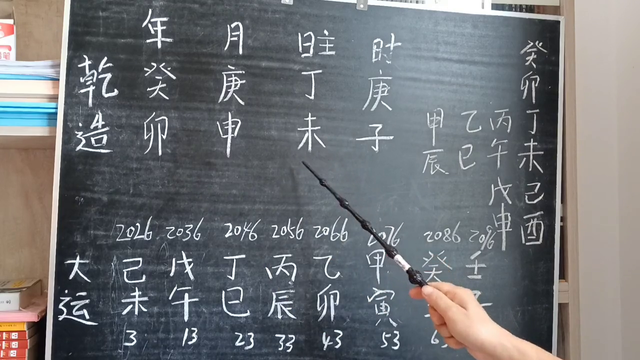 年 月 日主 时
乾 癸 庚 丁 庚
造 卯 申 未 子
癸卯丁未己酉
丙午戊申
乙巳
甲辰
2026 2036 2046 2056 2066 2086 2096
大 己 戊 丁 丙 乙 甲 癸 壬
运 未 午 巳 辰 卯 寅
3 13 23 33 43 53